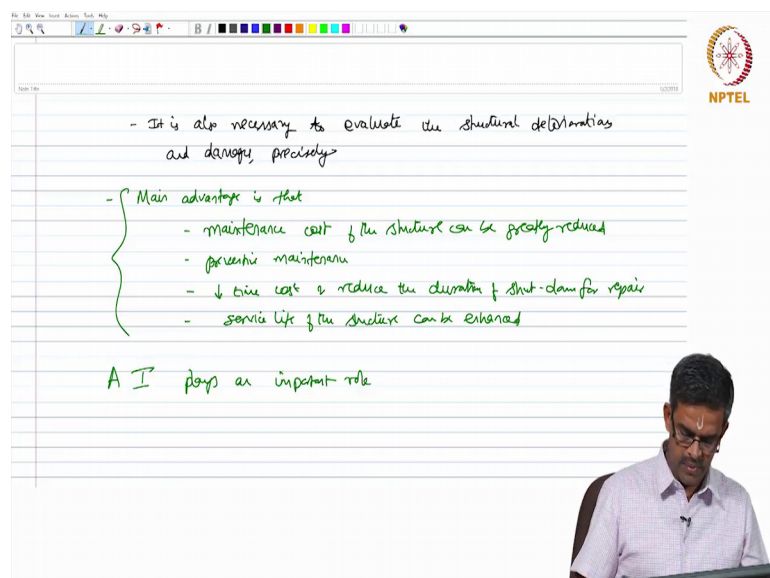 File Edit View Insert Actions Tools Help
B I
NPTEL
Note Title
5/2/2018
- It is also necessary to evaluate the structural deteriorations
and damage, precisely
- Main advantage is that
- maintenance cost of the structure can be greatly reduced
- preventive maintenance
- ↓ time cost & reduce the duration of shut-down for repair
- service life of the structure can be enhanced
AI plays an important role